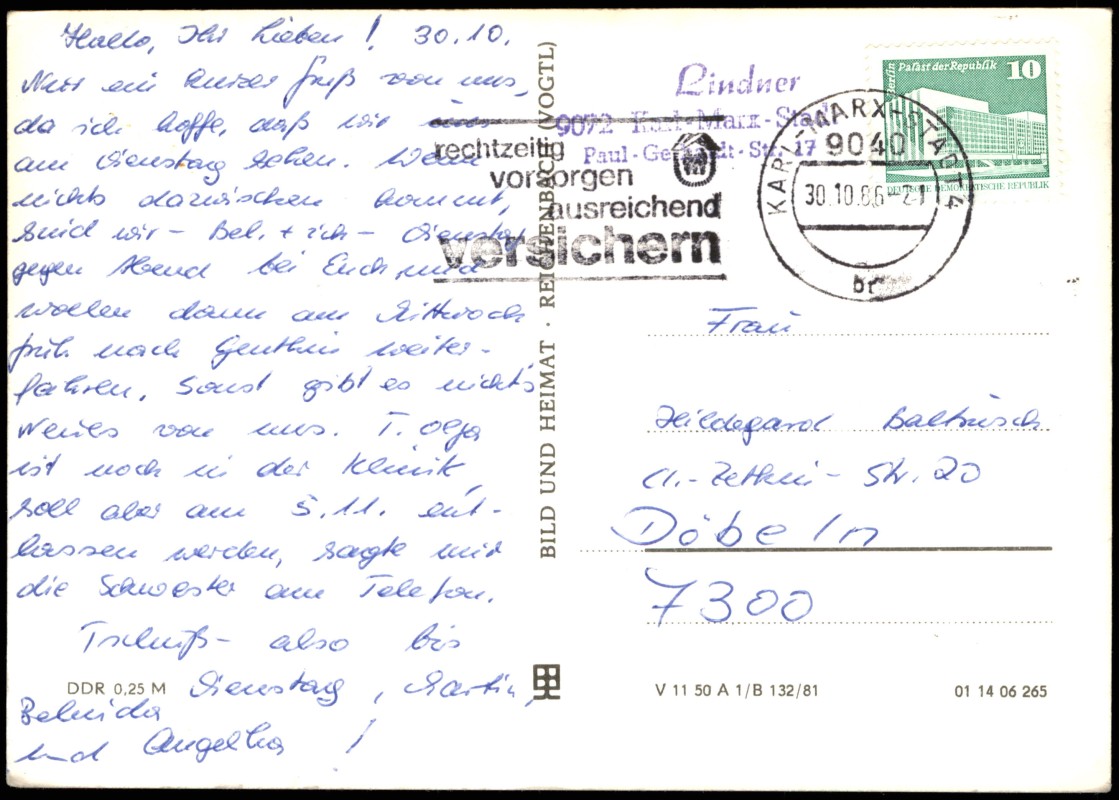 Hallo, Ihr Lieben! 30.10.
Nur ein kurzer Gruß von uns,
da ich hoffe, daß wir uns
am Dienstag sehen. Wenn
nichts dazwischen kommt,
sind wir – Bel. + ich – Dienstag
gegen Abend bei Euch und
wollen dann am Mittwoch
früh nach Genthin weiter-
fahren. Sonst gibt es nichts
Neues von uns. T. Olga
ist noch in der Klinik,
soll aber am 5.11. ent-
lassen werden, sagte mir
die Schwester am Telefon.
Tschüß – also bis
Dienstag, Martin,
Belinda
und Angelika!
DDR 0,25 M
BILD UND HEIMAT · REICHENBACH (VOGTL)
Lindner
9072 Karl-Marx-Stadt
Paul-Gerhardt-Str. 17
rechtzeitig
vorsorgen
ausreichend
versichern
KARL-MARX-STADT 4
9040
30.10.86-21
br
Berlin Palast der Republik 10
DEUTSCHE DEMOKRATISCHE REPUBLIK
Frau
Hildegard
C.-Zetkin-Str. 20
Döbeln
7300
V 11 50 A 1/B 132/81
01 14 06 265